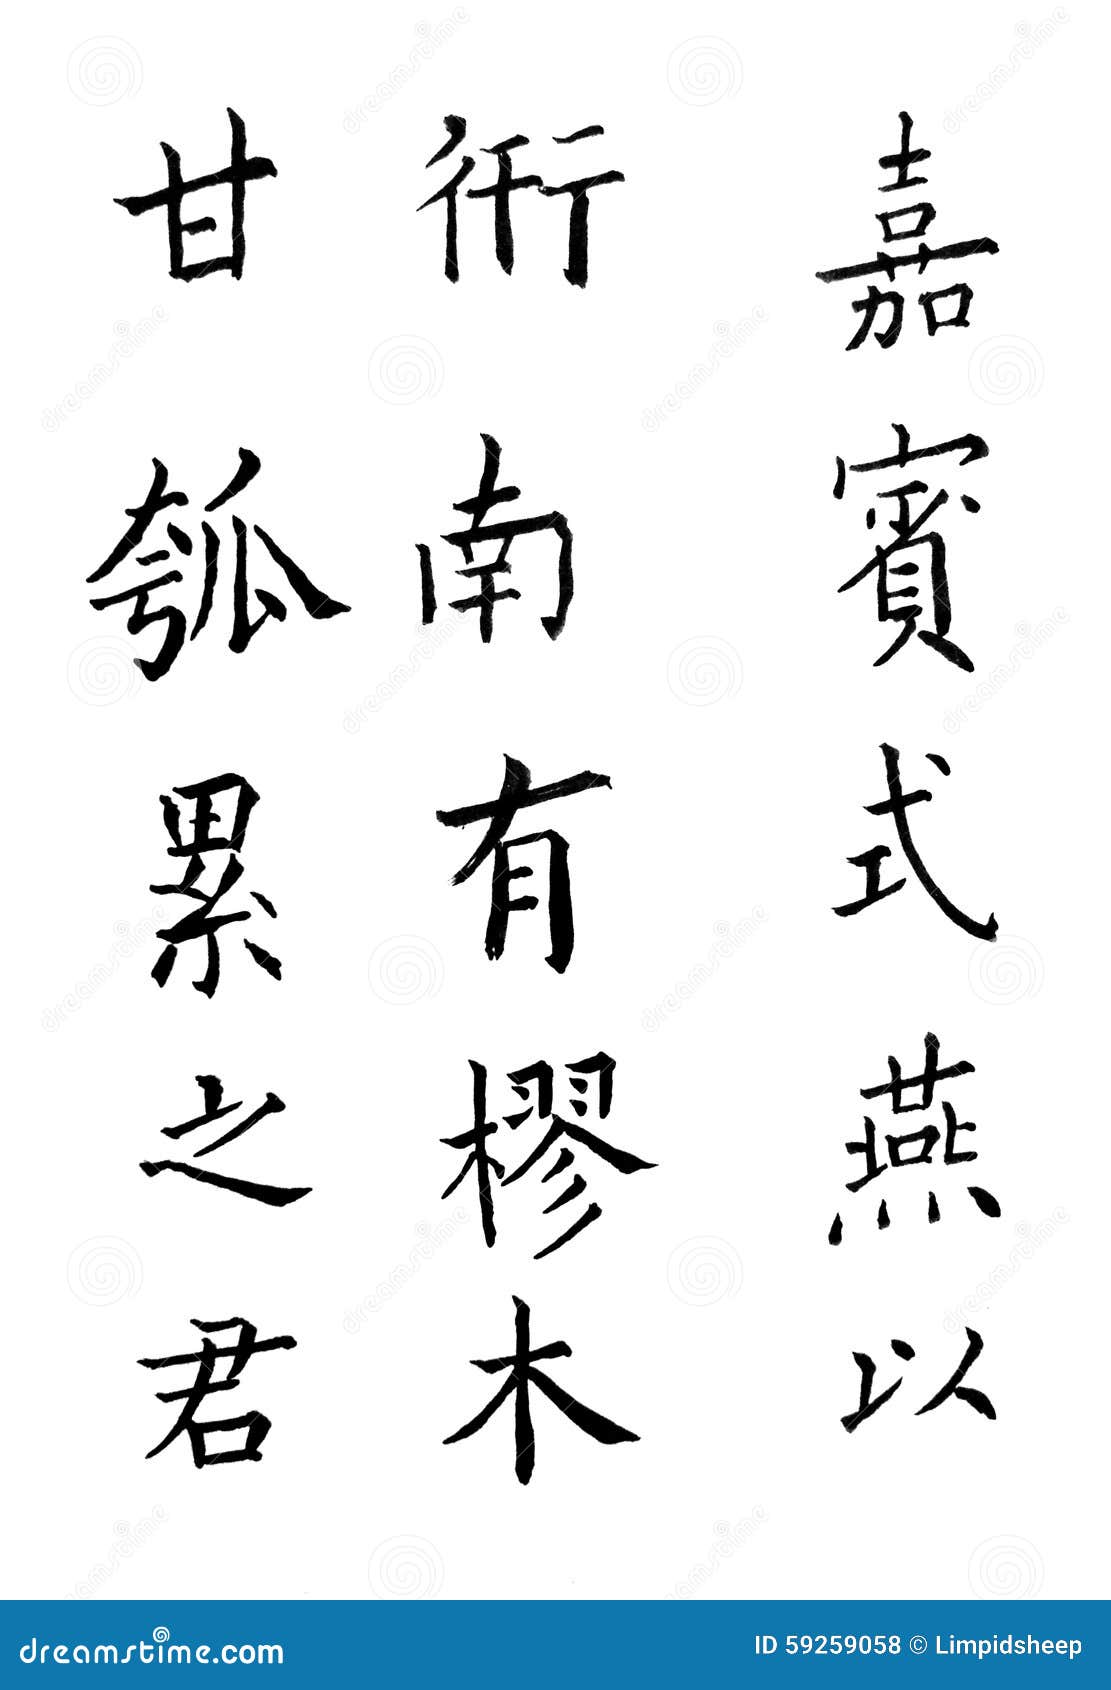 嘉賓式燕以
衎南有樛木
甘瓠累之君
dreamstime.com
ID 59259058 © Limpidsheep